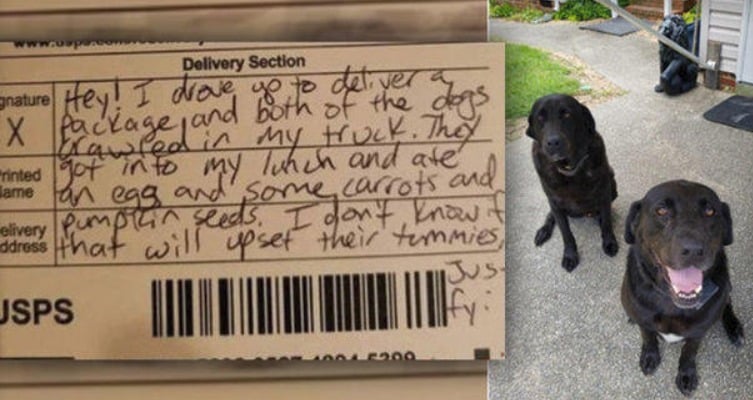 Delivery Section
gnature
X
Hey! I drove up to deliver a
package, and both of the dogs
crawled in my truck. They
rinted
ame
got into my lunch and ate
an egg and some carrots and
elivery
ddress
pumpkin seeds. I don't know if
that will upset their tummies,
Jus-
fy:
USPS